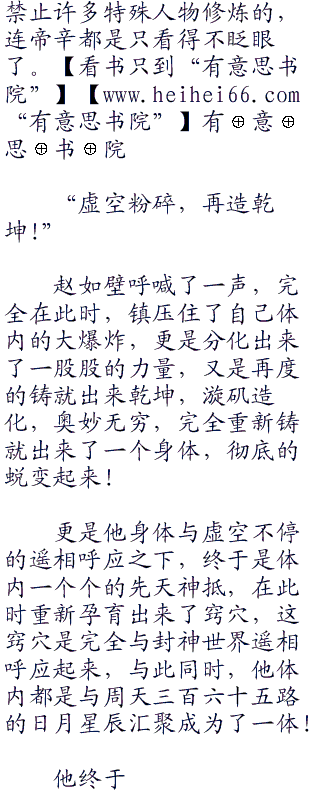 禁止许多特殊人物修炼的，
连帝辛都是只看得不眨眼
了。【看书只到“有意思书
院”】【www.heihei66.com
“有意思书院”】有⊕意⊕
思⊕书⊕院
“虚空粉碎，再造乾
坤！”
赵如壁呼喊了一声，完
全在此时，镇压住了自己体
内的大爆炸，更是分化出来
了一股股的力量，又是再度
的铸就出来乾坤，漩矶造
化，奥妙无穷，完全重新铸
就出来了一个身体，彻底的
蜕变起来！
更是他身体与虚空不停
的遥相呼应之下，终于是体
内一个个的先天神抵，在此
时重新孕育出来了窍穴，这
窍穴是完全与封神世界遥相
呼应起来，与此同时，他体
内都是与周天三百六十五路
的日月星辰汇聚成为了一体！
他终于